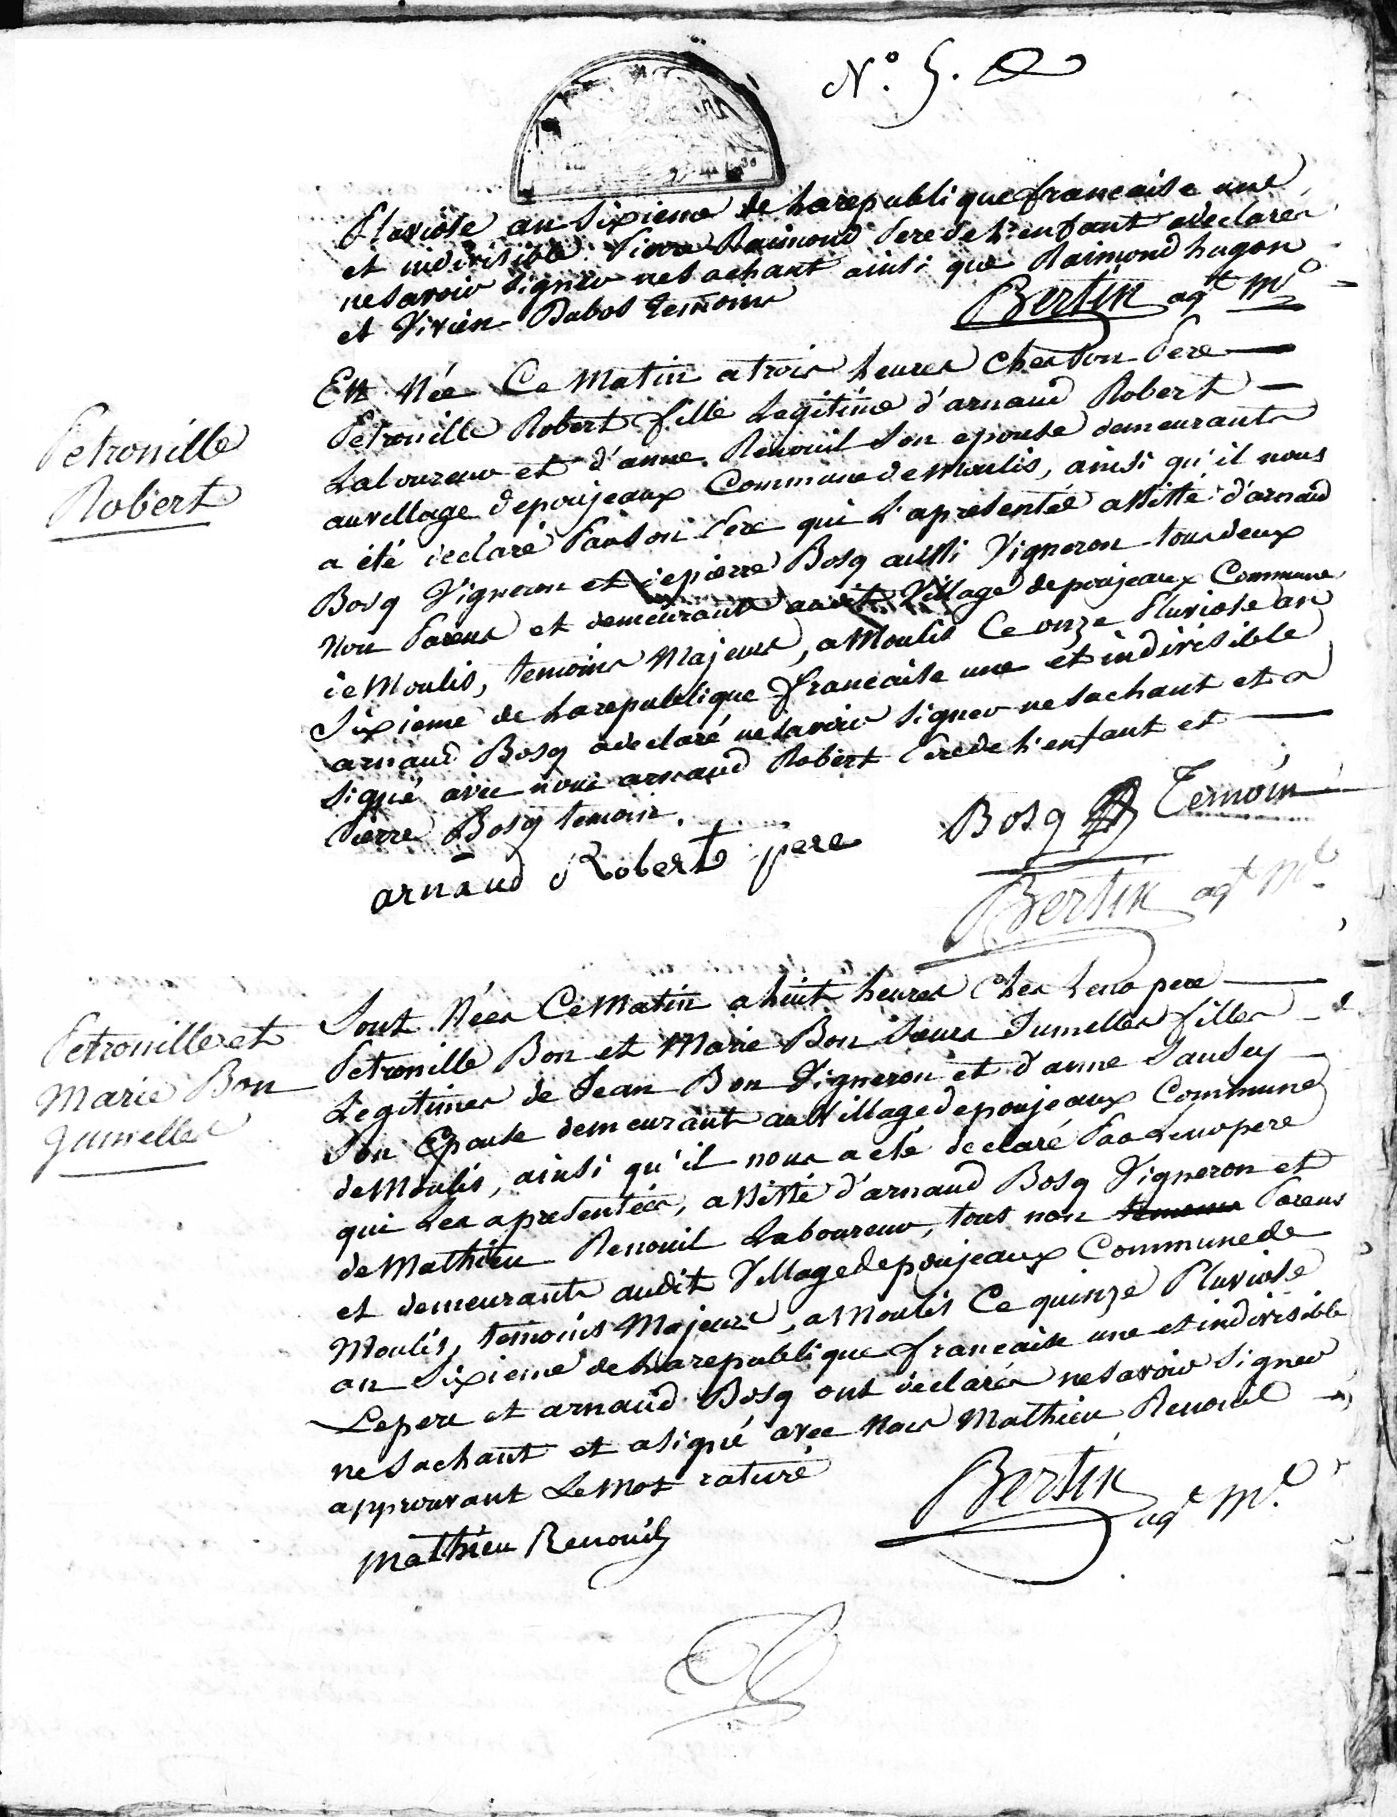 N.° 5.
Pluviose an Sixieme de Larepublique francaise une
et indivisible Pierre Raimond Pere de L'enfant adeclarer
nesavoir signer nesachant ainsi que Raimond hugon
et Vivien Dubos temoins
Bertin agt ml
Est Née Ce Matin a trois heures ches son Pere
Petronille Robert fille Legitime d'arnaud Robert
Laboureur et d'anne Renouil son epouse demeurants
au village depoujeaux Commune de Moulis, ainsi qu'il nous
a été declaré Par son Pere qui L'apresentée assisté d'arnaud
Bosq Vigneron et depierre Bosq aussi Vigneron tous deux
Non Parens et demeurants audit Village de poujeaux Commune
de Moulis, temoins Majeurs, a Moulis Ce onze Pluviose an
Sixieme de Larepublique francaise une et indivisible
arnaud Bosq adeclaré nesavoir signer nesachant et a
signé avec nous arnaud Robert Pere de L'enfant et
Pierre Bosq temoin.
arnaud Robert pere
Bosq Temoin
Bertin agt ml
Petronille
Robert
Sont Nées Ce Matin a huit heures Ches Leur pere
Petronille Bon et Marie Bon Soeurs Jumelles filles
Legitimes de Jean Bon Vigneron et d'anne Jautey
Son Epouse demeurant au Village depoujeaux Commune
de Moulis, ainsi qu'il nous a été declaré Par Leur pere
qui Les apresentées, assisté d'arnaud Bosq Vigneron et
de Mathieu Renouil Laboureur, tous non temoins Parens
et demeurants audit Village de poujeaux Commune de
Moulis, temoins Majeurs, a Moulis Ce quinze Pluviose
an Sixieme de Larepublique francaise une et indivisible
Lepere et arnaud Bosq ont declarés nesavoir signer
nesachant et a signé avec Nous Mathieu Renouil
approuvant Le mot raturé
Mathieu Renouil
Bertin
agt ml
Petronille et
Marie Bon
Jumelles